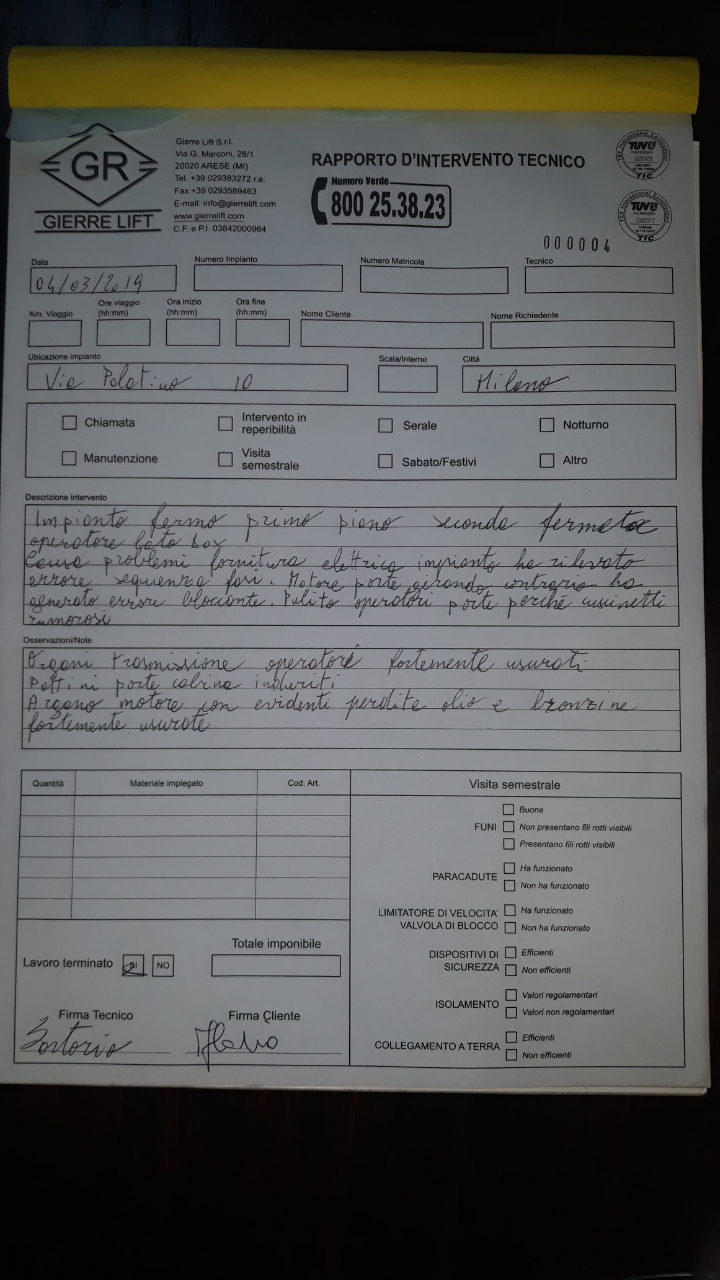 GR
GIERRE LIFT
Gierre Lift S.r.l.
Via G. Marconi, 28/1
20020 ARESE (MI)
Tel. +39 029383272 r.a.
Fax +39 0293589463
E-mail: info@gierrelift.com
www.gierrelift.com
C.F. e P.I. 03842000964
RAPPORTO D'INTERVENTO TECNICO
Numero Verde
800 25.38.23
TÜV
TIC
TÜV
TIC
000004
Data
04/03/2019
Numero Impianto
Numero Matricola
Tecnico
Km. Viaggio
Ore viaggio
(hh:mm)
Ora inizio
(hh:mm)
Ora fine
(hh:mm)
Nome Cliente
Nome Richiedente
Ubicazione impianto
Via Palatino 10
Scala/Interno
Città
Milano
Chiamata
Intervento in
reperibilità
Serale
Notturno
Manutenzione
Visita
semestrale
Sabato/Festivi
Altro
Descrizione intervento
Impianto fermo primo piano seconda fermata
operatore lato box
Causa problemi fornitura elettrica impianto ha rilevato
errore sequenza fasi. Motore porte girando contrario ha
generato errore bloccante. Pulito operatori porte perché cuscinetti
rumorosi
Osservazioni/Note
Organi trasmissione operatore fortemente usurati
Pattini porte cabina induriti
Argano motore con evidenti perdite olio e bronzine
fortemente usurate
Quantità
Materiale impiegato
Cod. Art.
Visita semestrale
FUNI
Buone
Non presentano fili rotti visibili
Presentano fili rotti visibili
PARACADUTE
Ha funzionato
Non ha funzionato
LIMITATORE DI VELOCITA'
VALVOLA DI BLOCCO
Ha funzionato
Non ha funzionato
DISPOSITIVI DI
SICUREZZA
Efficienti
Non efficienti
ISOLAMENTO
Valori regolamentari
Valori non regolamentari
COLLEGAMENTO A TERRA
Efficienti
Non efficienti
Totale imponibile
Lavoro terminato SI NO
Firma Tecnico
Sartorio
Firma Cliente